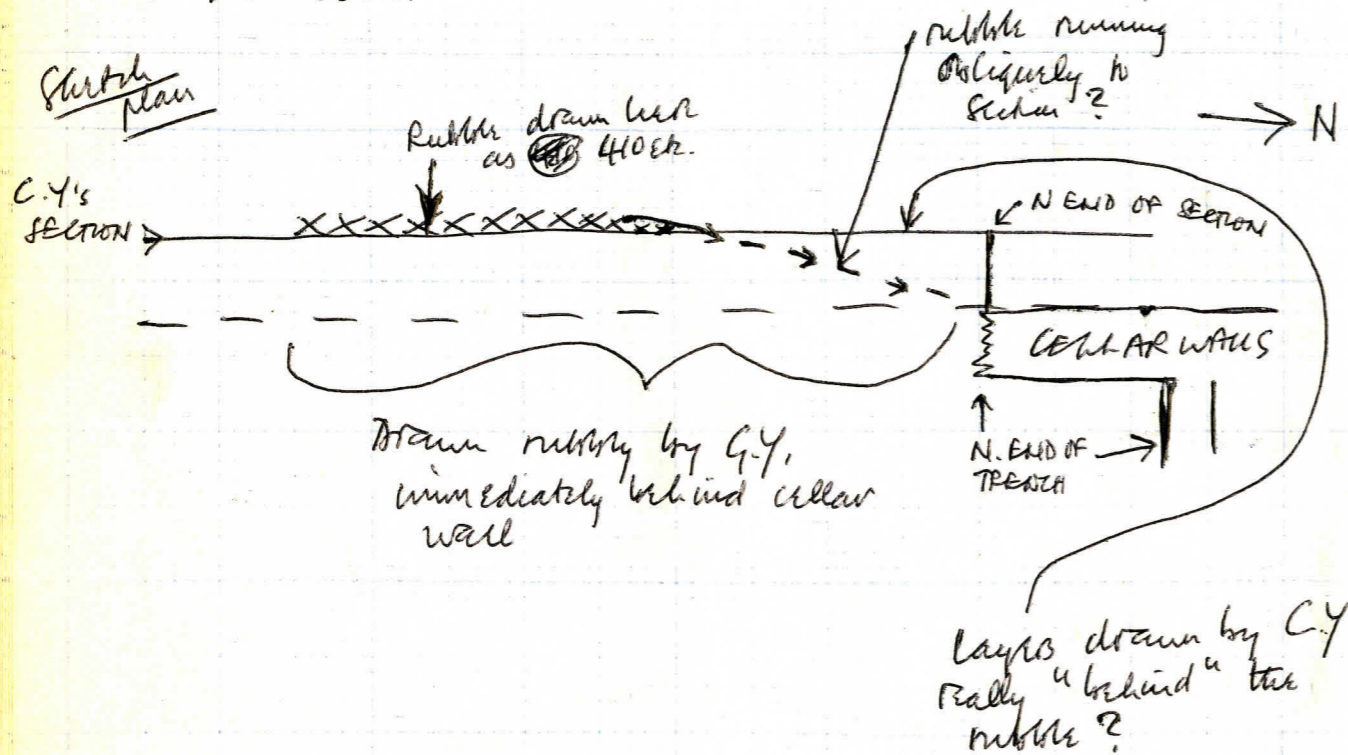 Sketch
plan
Rubble drawn here
as 410 etc.
rubble running
obliquely to
section?
N
C.Y's
SECTION
N END OF SECTION
CELLAR WALLS
Drawn rubbly by C.Y,
immediately behind cellar
wall
N. END OF
TRENCH
Layers drawn by C.Y
really "behind" the
rubble?